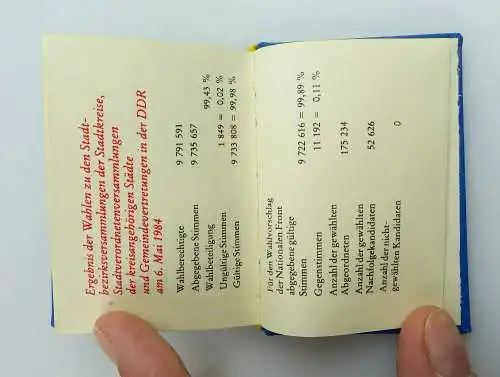 Ergebnis der Wahlen zu den Stadt-
bezirksversammlungen der Stadtkreise,
Stadtverordnetenversammlungen
der kreisangehörigen Städte
und Gemeindevertretungen in der DDR
am 6. Mai 1984
Wahlberechtigte 9 791 591
Abgegebene Stimmen 9 735 657
Wahlbeteiligung 99,43 %
Ungültige Stimmen 1 849 = 0,02 %
Gültige Stimmen 9 733 808 = 99,98 %
Für den Wahlvorschlag
der Nationalen Front
abgegebene gültige
Stimmen 9 722 616 = 99,89 %
Gegenstimmen 11 192 = 0,11 %
Anzahl der gewählten
Abgeordneten 175 234
Anzahl der gewählten
Nachfolgekandidaten 52 626
Anzahl der nicht-
gewählten Kandidaten 0